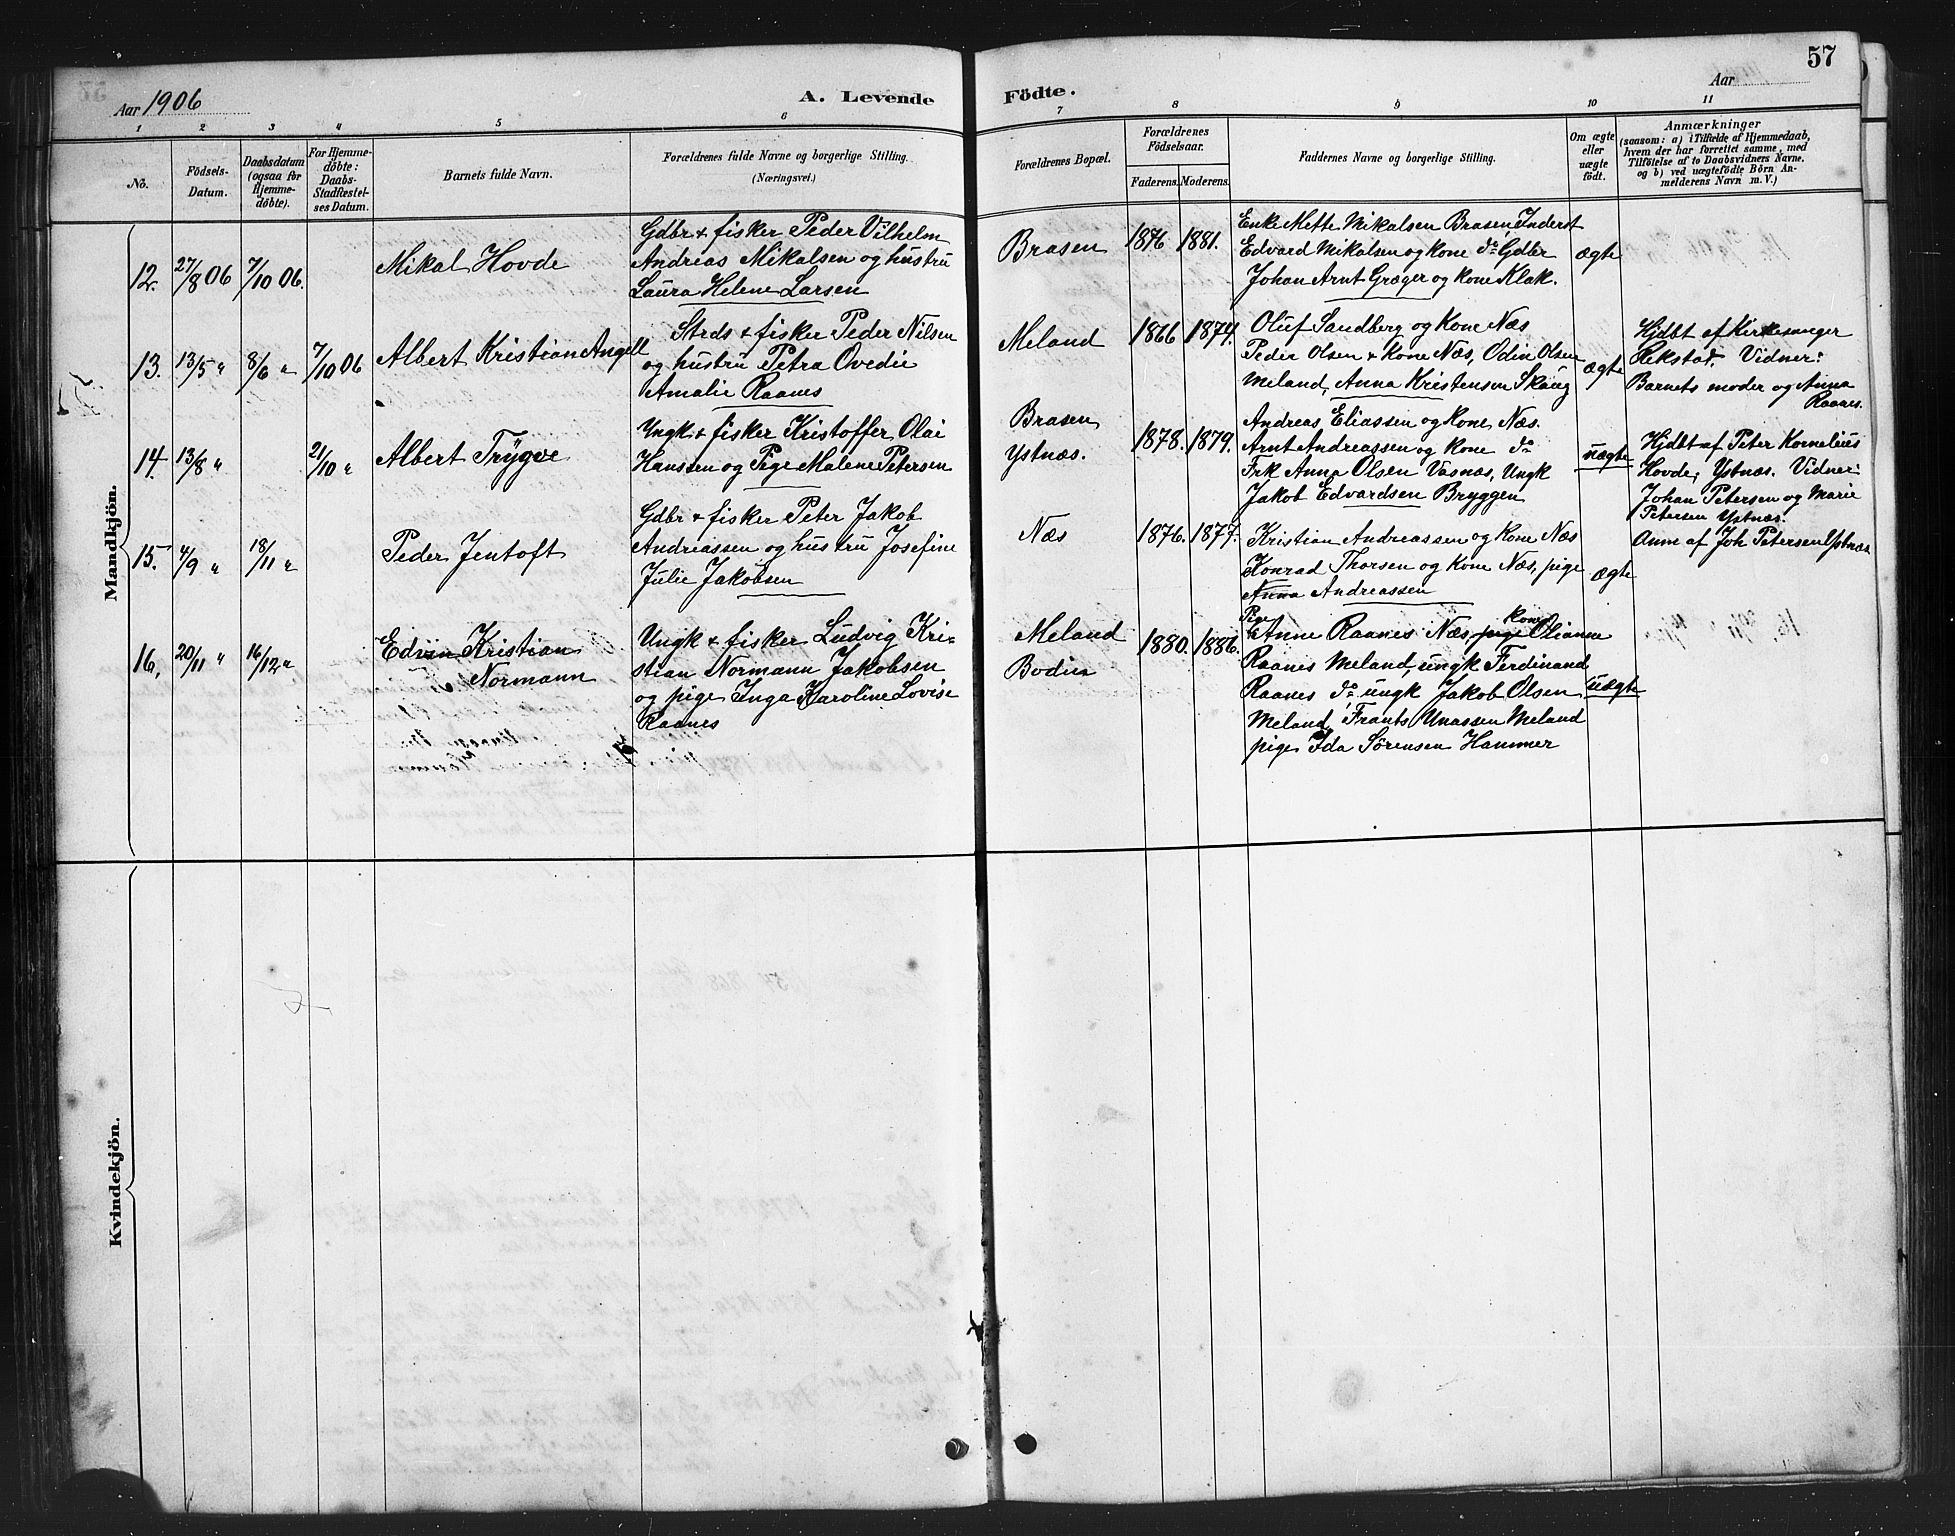 57
Aar 1906
A. Levende Födte.
Aar
1 2 3 4 5 6 7 8 9 10 11
No.
Födsels-Datum.
Daabsdatum (ogsaa for Hjemme-döbte).
For Hjemme-döbte: Daabs-Stadfæstel-ses Datum.
Barnets fulde Navn.
Forældrenes fulde Navne og borgerlige Stilling.
(Næringsvei.)
Forældrenes Bopæl.
Forældrenes Födselsaar.
Faderens. Moderens.
Faddernes Navne og borgerlige Stilling.
Om ægte eller uægte födt.
Anmærkninger
(saasom: a) i Tilfælde af Hjemmedaab, hvem der har forrettet samme, med Tilföielse af to Daabsvidners Navne. og b) ved uægtefödte Börn An-melderens Navn m. V.)
Mandkjön.
12. 27/8 06 7/10 06. Mikal Hovde
Gdbr & fisker Peder Vilhelm
Andreas Mikalsen og hustru
Laura Helene Larsen
Brasen 1876 1881.
Enke Mette Mikalsen Brasen, Inderst
Edvard Mikalsen og kone do Gdbr
Johan Arnt Græger og kone Klak.
ægte
13. 13/5 " 8/6 " 7/10 06 Albert Kristian Angell
Strds & fisker Peder Nilsen
og hustru Petra Ovedie
Amalie Raanes
Meland 1866 1874.
Oluf Sandberg og kone Næs
Peder Olsen & kone Næs, Odin Olsen
Meland, Anna Kristensen Skaug
ægte
Hjdbt af Kirkesanger
Rekstad. Vidner:
Barnets moder og Anna
Raanes.
14. 13/8 " 21/10 " Albert Trygve
Ungk & fisker Kristoffer Olai
Hanssen og Pige Malene Petersen
Brasen
Ystnæs. 1878. 1879.
Andreas Eliassen og kone Næs.
Arnt Andreassen og kone do
Frk Anna Olsen Vasnæs, Ungk
Jakob Edvardsen Bryggen
uægte
Hjdbt af Peter Kornelius
Hovde, Ystnæs. Vidner:
Johan Petersen og Marie
Petersen Ystnæs.
Anm af Joh Petersen Ystnæs
15. 4/9 " 18/11 " Peder Jentoft
Gdbr & fisker Peter Jakob
Andreassen og hustru Josefine
Julie Jakobsen
Næs 1876. 1877.
Kristian Andreassen og kone Næs
Konrad Thorsen og kone Næs, pige
Anna Andreassen
ægte
16. 20/11 " 16/12 " Edvin Kristian
Normann
Ungk & fisker Ludvig Kri-
stian Normann Jakobsen
og pige Inga Karoline Lovise
Raanes
Meland
Bodin 1880. 1886.
Pige kone
Anne Raanes Næs, pige Olianne
Raanes Meland, ungk Ferdinand
Raanes do ungk Jakob Olsen
Meland, Frants Unassen Meland
pige Ida Sørensen Hammer
uægte
Kvindekjön.